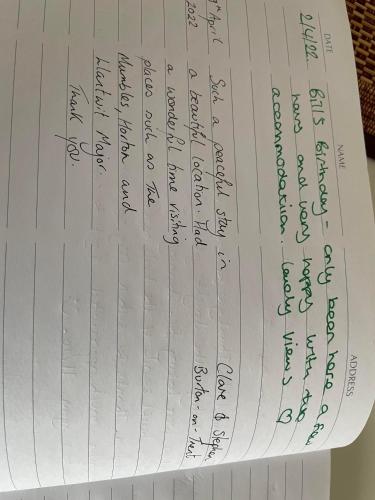 DATE NAME ADDRESS
2/4/22. Bill's Birthday - only been here a few
hours and very happy with the
accommodation. Lovely views ♡
9th April Such a peaceful stay in Clare & Stephen
2022 a beautiful location. Had Burton-on-Trent
a wonderful time visiting
places such as The
Mumbles, Horton and
Llantwit Major.
Thank you.